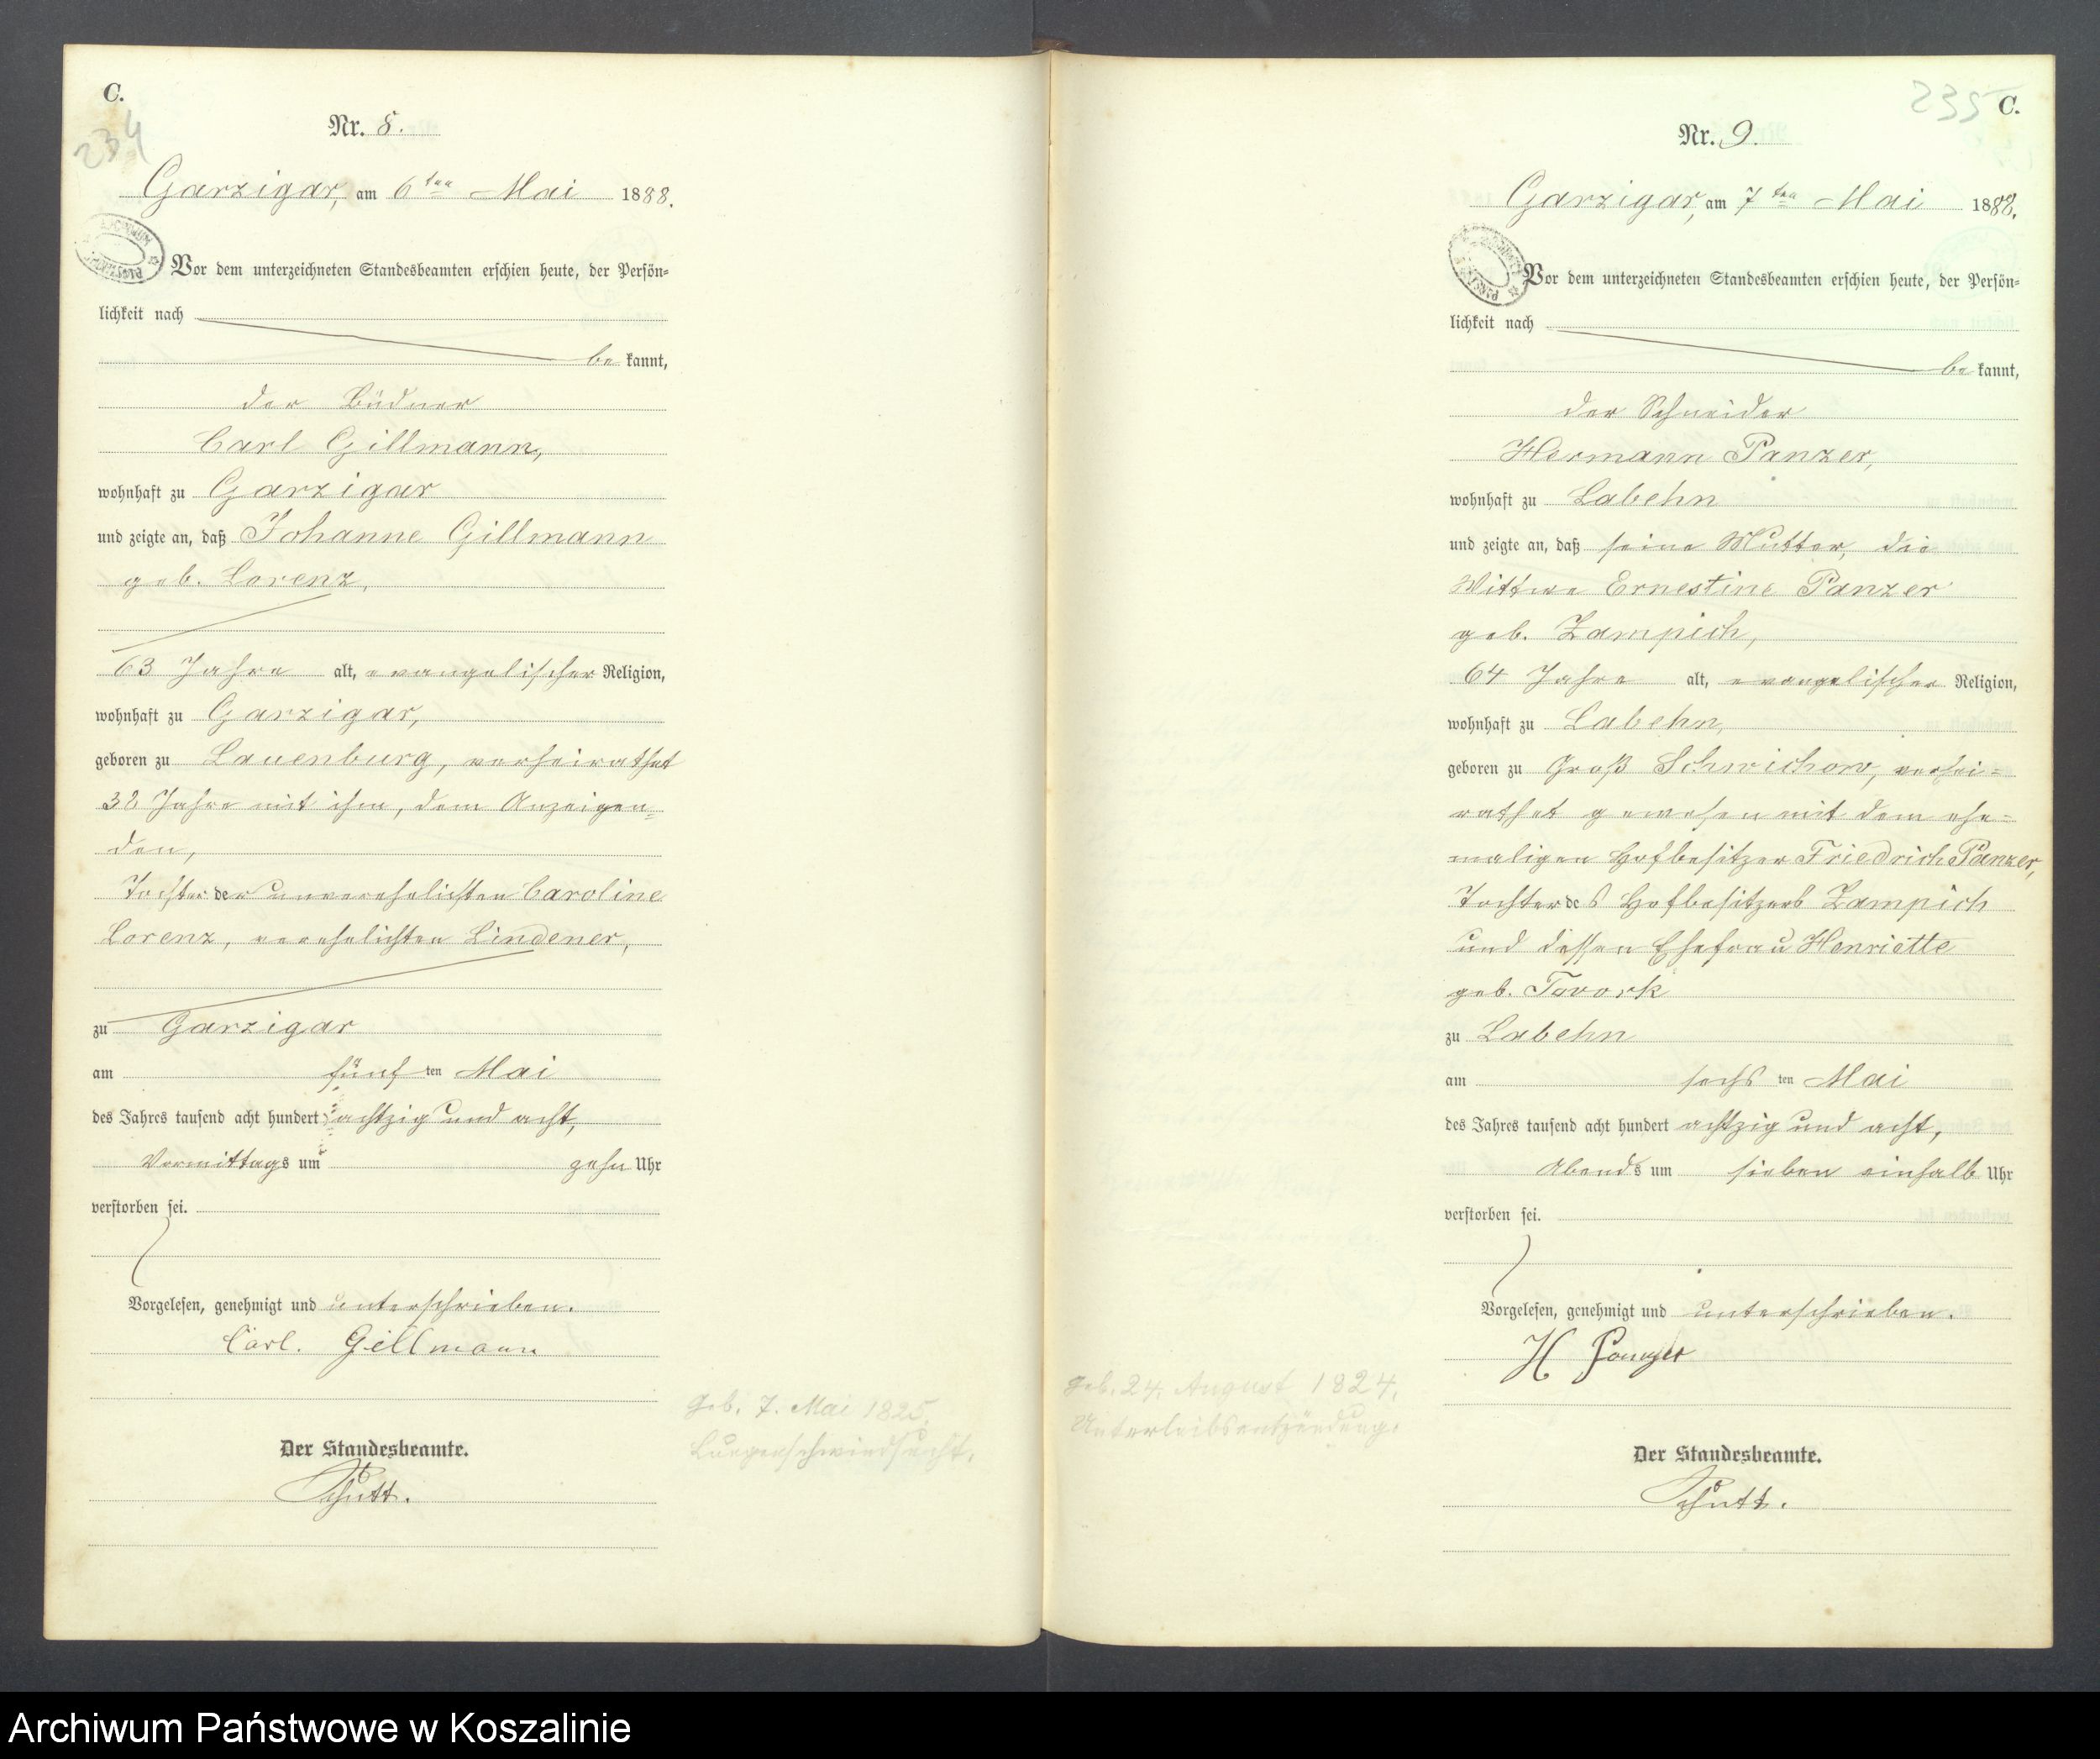 C.
234
Nr. 8.
Garzigar, am 6ten Mai 1888.
Vor dem unterzeichneten Standesbeamten erschien heute, der Persön-
lichkeit nach
be kannt,
der Büdner
Carl Gillmann,
wohnhaft zu Garzigar
und zeigte an, daß Johanne Gillmann
geb. Lorenz,
63 Jahre alt, evangelischer Religion,
wohnhaft zu Garzigar,
geboren zu Lauenburg, verheirathet
32 Jahre mit ihm, dem Anzeigen-
den,
Tochter der unverehelichten Caroline
Lorenz, verehelichten Lindener,
zu Garzigar
am fünf ten Mai
des Jahres tausend acht hundert achtzig und acht,
Vormittags um zehn Uhr
verstorben sei.
Vorgelesen, genehmigt und unterschrieben.
Carl. Gillmann
Der Standesbeamte.
Schutt.
Geb. 7. Mai 1825.
Lungenschwindsucht.
235
C.
Nr. 9.
Garzigar, am 7ten Mai 1888.
Vor dem unterzeichneten Standesbeamten erschien heute, der Persön-
lichkeit nach
be kannt,
der Schneider
Hermann Panzer,
wohnhaft zu Labehn
und zeigte an, daß seine Mutter, die
Wittwe Ernestine Panzer
geb. Zampich,
64 Jahre alt, evangelischer Religion,
wohnhaft zu Labehn,
geboren zu Groß Schwichow, verhei-
rathet gewesen mit dem ehe-
maligen Hofbesitzer Friedrich Panzer,
Tochter des Hofbesitzers Zampich
und dessen Ehefrau Henriette
geb.
zu Labehn
am sechs ten Mai
des Jahres tausend acht hundert achtzig und acht,
Abends um sieben einhalb Uhr
verstorben sei.
Vorgelesen, genehmigt und unterschrieben.
H Panzer
Der Standesbeamte.
Schutt.
Geb. 24. August 1824.
Unterleibsentzündung.
Archiwum Państwowe w Koszalinie